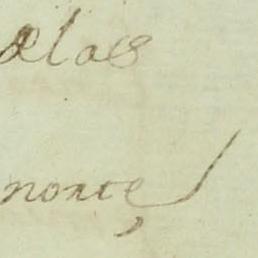 delas
norte